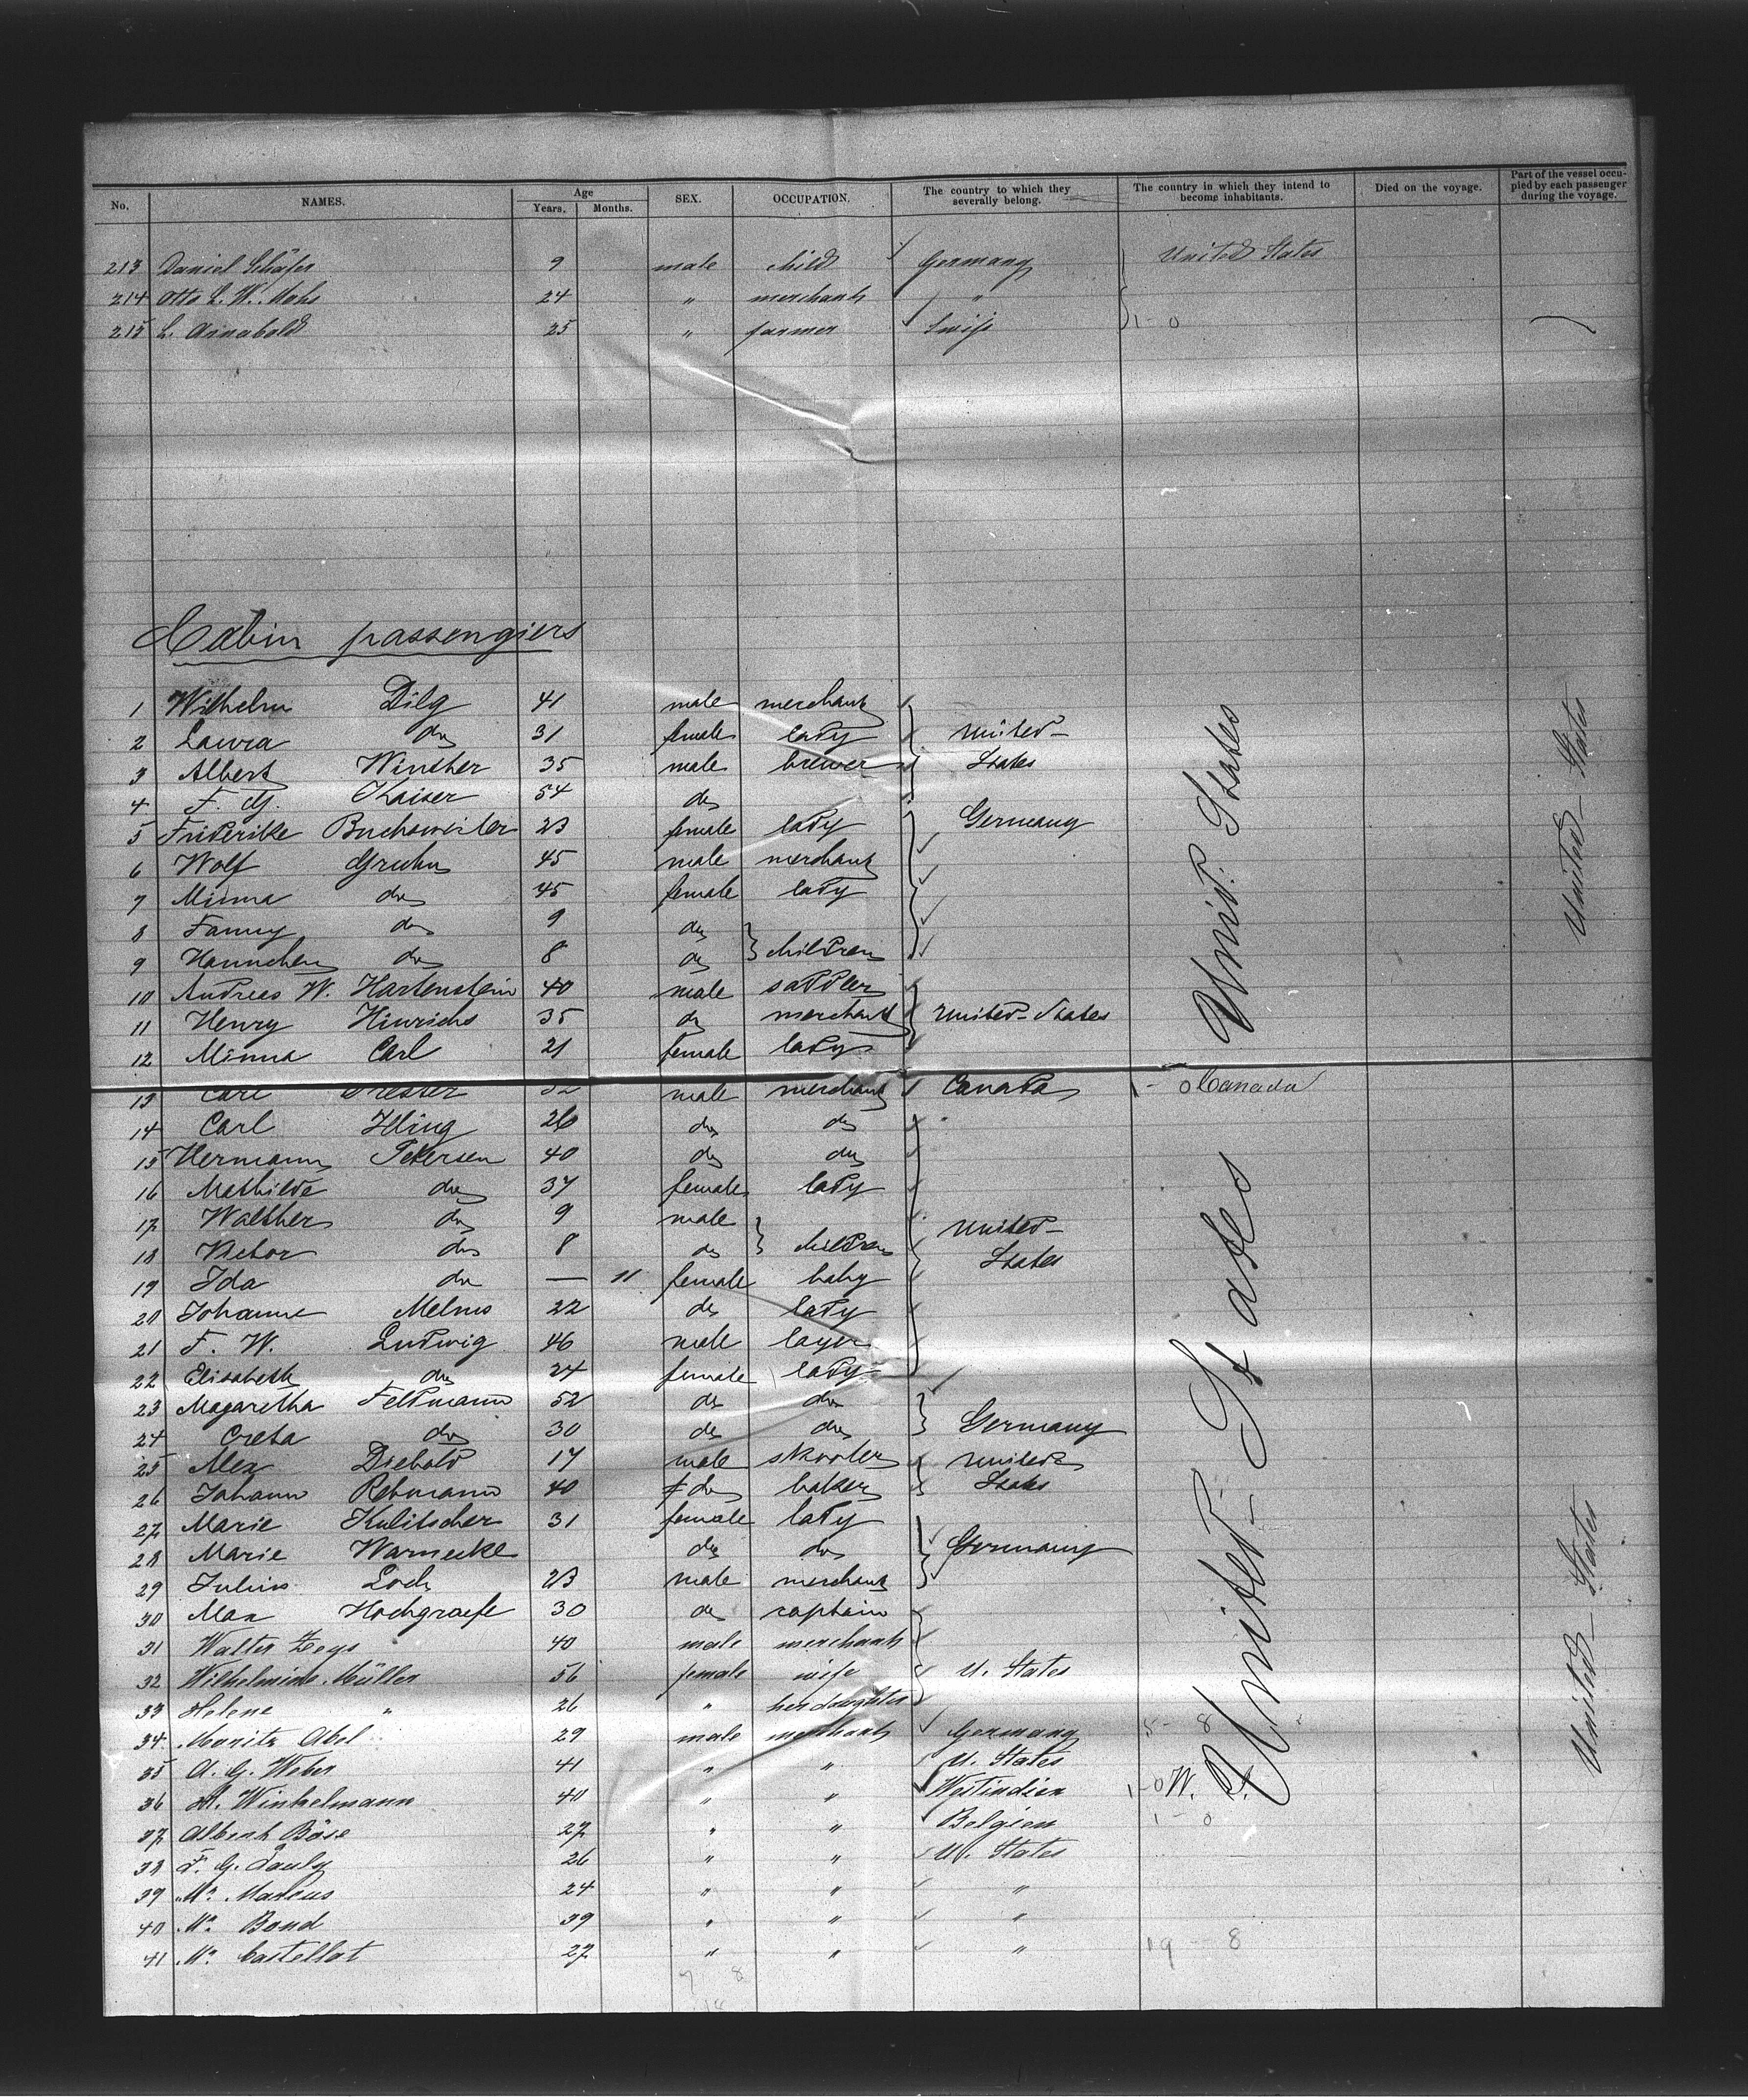 No. NAMES. Age Years. Months. SEX. OCCUPATION. The country to which they severally belong. The country in which they intend to become inhabitants. Died on the voyage. Part of the vessel occupied by each passenger during the voyage.
213 Daniel Schäfer 9 male child Germany United States
214 Otto L. W. 24 " merchant "
215 L. Arnabold 25 " farmer Swiss 1 - 0
Cabin passengiers
1 Wilhelm Dilg 41 male merchant
2 Laura do 31 female lady United
3 Albert Winther 35 male brewer States
4 F. G. Kaiser 54 do
5 Friderike Buchsweiler 23 female lady Germany
6 Wolf Gruhn 45 male merchant
7 Minna do 45 female lady
8 Fanny do 9 do
9 Hannchen do 8 do children
10 Andreas W. Hartenstein 40 male saddler
11 Henry Hinrichs 35 do merchant United States
12 Minna Carl 21 female lady
13 Carl male merchant Canada 1 - 0 Canada
14 Carl Illing 26 do do
15 Hermann Petersen 40 do do
16 Mathilde do 37 female lady
17 Walther do 9 male
18 Victor do 8 do children United States
19 Ida do — 11 female baby
20 Johanne Melms 22 do lady
21 F. W. Ludwig 46 male layer
22 Elisabeth do 24 female lady
23 Magaretha Feldmann 52 do do
24 Creta do 30 do do Germany
25 Alex Diebold 17 male skooler United
26 Johann Rebmann 40 do baker States
27 Marie Kulitscher 31 female lady
28 Marie Warnecke do do Germany
29 Julius Loch 23 male merchant
30 Max Hochgraefe 30 do captain
31 Walter Zeys 40 male merchant
32 Wilhelmine Müller 56 female wife U. States
33 Helene " 26 " her daughter
34 Moritz Abel 29 male merchant Germany 5 - 8
35 A. G. Weber 41 " " U. States
36 H. Winkelmann 40 " " Westindien 1 - 0 W. I.
37 Albert Böse 27 " " Belgien 1 - 0
38 F. G. Pauly 26 " " U. States
39 Mr. Marcus 24 " " "
40 Mr. Bond 39 " " "
41 Mr. Castellat 27 " " " 19 - 8
Unit. States
United States
United States
United States